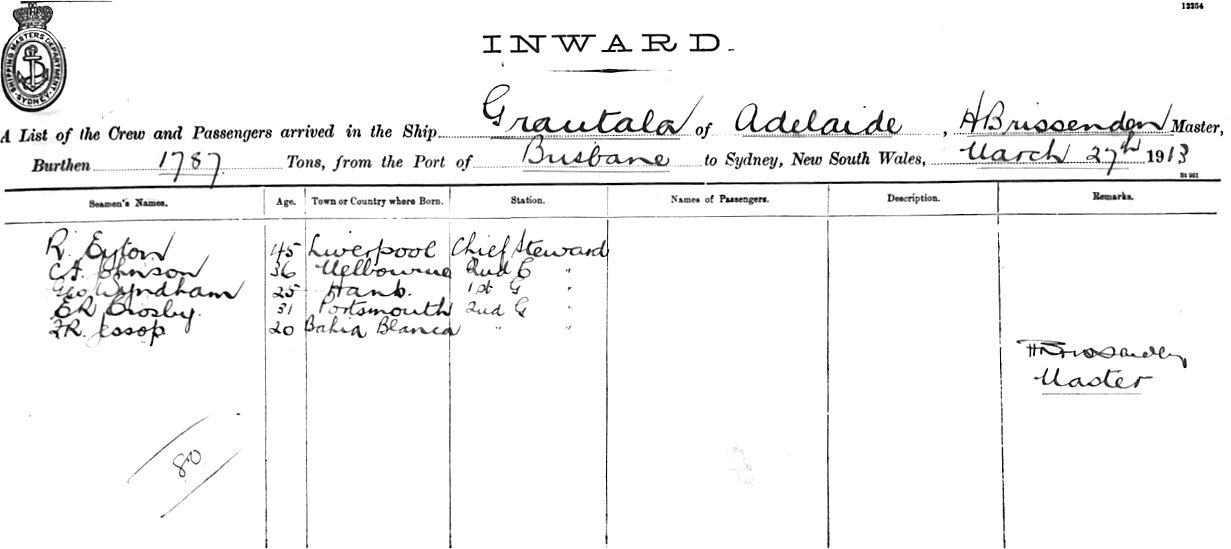 12254
SHIPPING MASTERS DEPARTMENT SYDNEY
INWARD.
A List of the Crew and Passengers arrived in the Ship Grantala of Adelaide, H Brissenden Master,
Burthen 1787 Tons, from the Port of Brisbane to Sydney, New South Wales, March 27th 1913
St 961
Seamen's Names. Age. Town or Country where Born. Station. Names of Passengers. Description. Remarks.
R. Eyton 45 Liverpool Chief Steward
C.A. Johnson 36 Melbourne 2nd C "
Geo Wyndham 25 Hants. 1st G "
E R Brosby. 31 Portsmouth 2nd G "
F.R. Jessop 20 Bahia Blanca " "
H Brissenden
Master
80